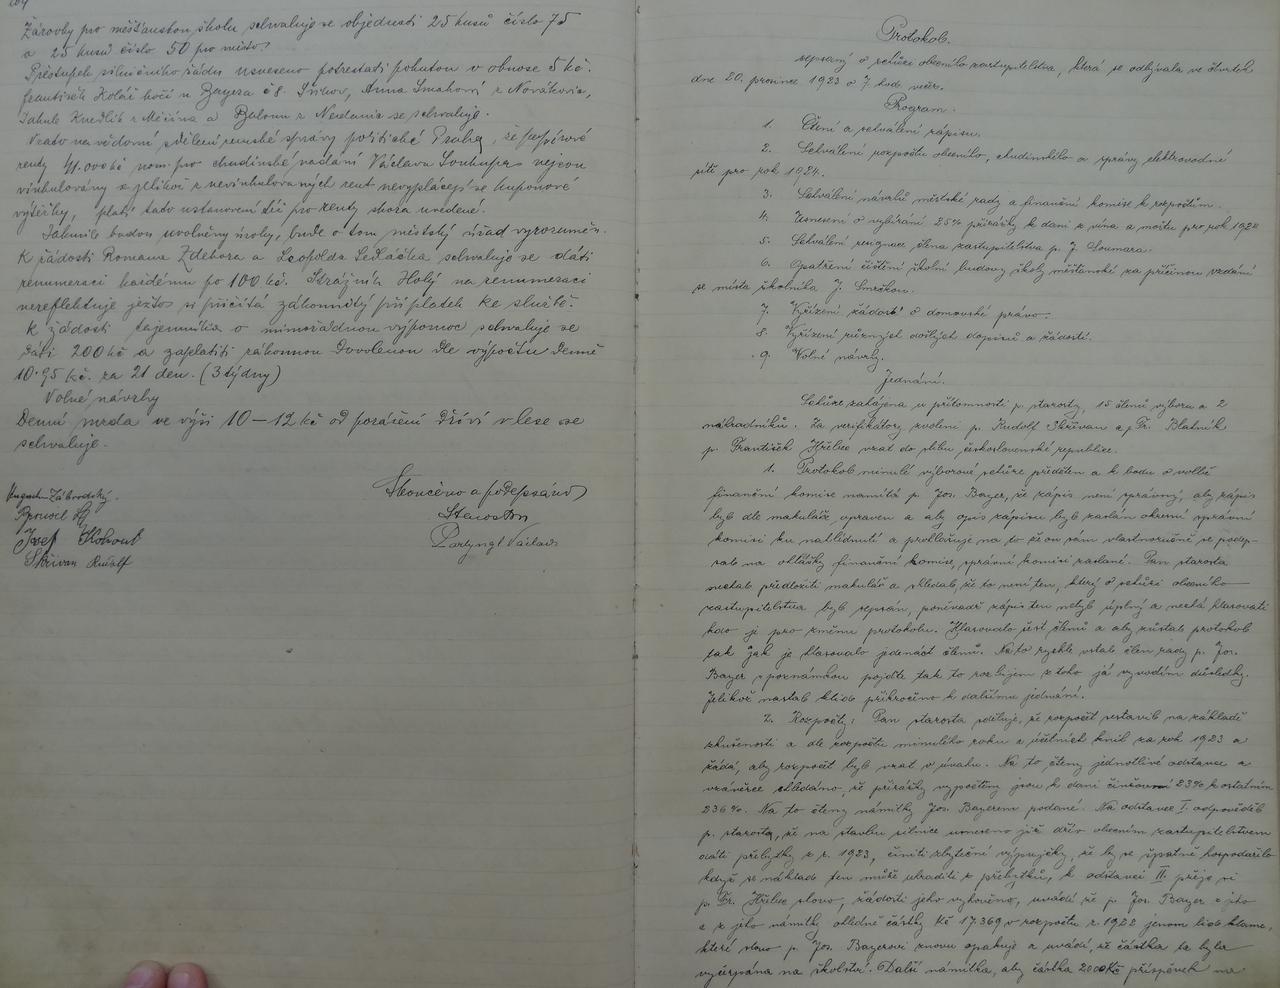 Žárovky pro měšťanskou školu schvaluje se objednati 25 kusů číslo 75
a 25 kusů číslo 50 pro město.
Přestupek silničního řádu usneseno potrestati pokutou v obnose 5 kč.
František Kolář kočí u Bayera č 8. Švihov, Anna
Jakub Knedlík z Měčína a z se schvaluje.
Vzato na vědomí sdělení zemské správy politické Praha, že papírové
renty 41.000 kč nom. pro chudinské nadání Václava Soukupa nejsou
vinkulovány a jelikož z nevinkulovaných rent nevyplácejí se kuponové
výtěžky, platí tato ustanovení též pro renty shora uvedené.
Jakmile budou uvolněny úroky, bude o tom městský úřad vyrozuměn.
K žádosti Romana Zdebora a Leopolda Sedláčka schvaluje se dáti
renumeraci každému po 100 kč. Strážník Holý na renumeraci
nereflektuje ježto si přičítá zákonnitý příplatek ke službě.
K žádosti tajemníka o mimořádnou výpomoc schvaluje se
dáti 200 kč a zaplatiti zákonnou dovolenou dle výpočtu denně
10.95 kč. za 21 den. (3 týdny)
Volné návrhy
Denní mzda ve výši 10–12 kč od porážení dříví v lese se
schvaluje.
Skončeno a podepsáno
Augustin Zábrodský.
Josef Kohout
Skřivan Rudolf
Partyngl Václav
Protokol.
sepsaný o schůzi obecního zastupitelstva, která se odbývala ve čtvrtek
dne 20. prosince 1923 o 7 hod. večer.
Program.
1. Čtení a schválení zápisu.
2. Schválení rozpočtu obecního, chudinského a správy elektrovodné
sítě pro rok 1924.
3. Schválení návrhů městské rady a finanční komise k rozpočtům.
4. Usnesení o vybírání 25% přirážky k dani z vína a moštu pro rok 1924
5. Schválení resignace člena zastupitelstva p. J. Soumara.
6. Opatření čištění školní budovy školy měšťanské za příčinou vzdání
se místa školníka J. Smrškou.
7. Vyřízení žádostí o domovské právo.
8. Vyřízení různých došlých dopisů a žádostí.
9. Volné návrhy.
Jednání.
Schůze zahájena u přítomnosti p. starosty, 15 členů výboru a 2
náhradníků. Za verifikátory zvoleni p. Rudolf Skřivan a p. Fr. Blatník
p. František Hřebec vzat do slibu československé republice.
1. Protokol minulé výborové schůze předčten a k bodu o volbě
finanční komise namítá p. Jos. Bayer, že zápis není správný, aby zápis
byl dle makuláře upraven a aby opis zápisu byl zaslán okresní správní
komisi ku nahlédnutí a prohlašuje na to že on sám vlastnoručně se podep-
sal na ohlášky finanční komise, správní komisi zaslané. Pan starosta
nechal předložiti makulář a shledal, že to není ten, který o schůzi obecního
zastupitelstva byl sepsán, poněvadž zápis ten nebyl úplný a nechá hlasovati
kdo je pro změnu protokolu. Hlasovalo šest členů a aby zůstal protokol
tak jak je hlasovalo jedenáct členů. Na to rychle vstal člen rady p. Jos.
Bayer s poznámkou pojďte tak to rozbijem z toho já vyvodím důsledky.
Jelikož nastal klid přikročeno k dalšímu jednání.
2. Rozpočty: Pan starosta sděluje, že rozpočet sestavil na základě
zkušeností a dle rozpočtu minulého roku a účetních knih za rok 1923 a
žádá, aby rozpočet byl vzat v úvahu. Na to čteny jednotlivé odstavce a
vzávěrce shledáno, že přirážky vypočteny jsou k dani činžovní 23% k ostatním
236%. Na to čteny námitky Jos. Bayerem podané. Na odstavec I. odpověděl
p. starosta, že na stavbu silnice usneseno již dřív obecním zastupitelstvem
dáti přebytky z r. 1923, činiti zbytečné výpůjčky, že by se špatně hospodařilo
když se náklad ten může uhraditi z přebytků, k odstavci II. přeje si
p. Fr. Hřebec slovo, žádosti jeho vyhověno, uvádí že p. Jos. Bayer z jeho
a z jeho námitky ohledně částky Kč 17.369 v rozpočtu z 1922 jenom lid klame,
které slovo p. Jos. Bayerovi znovu opakuje a uvádí, že částka ta byla
vyčerpána na školství. Další námitka, aby částka 2000 Kč příspěvek na